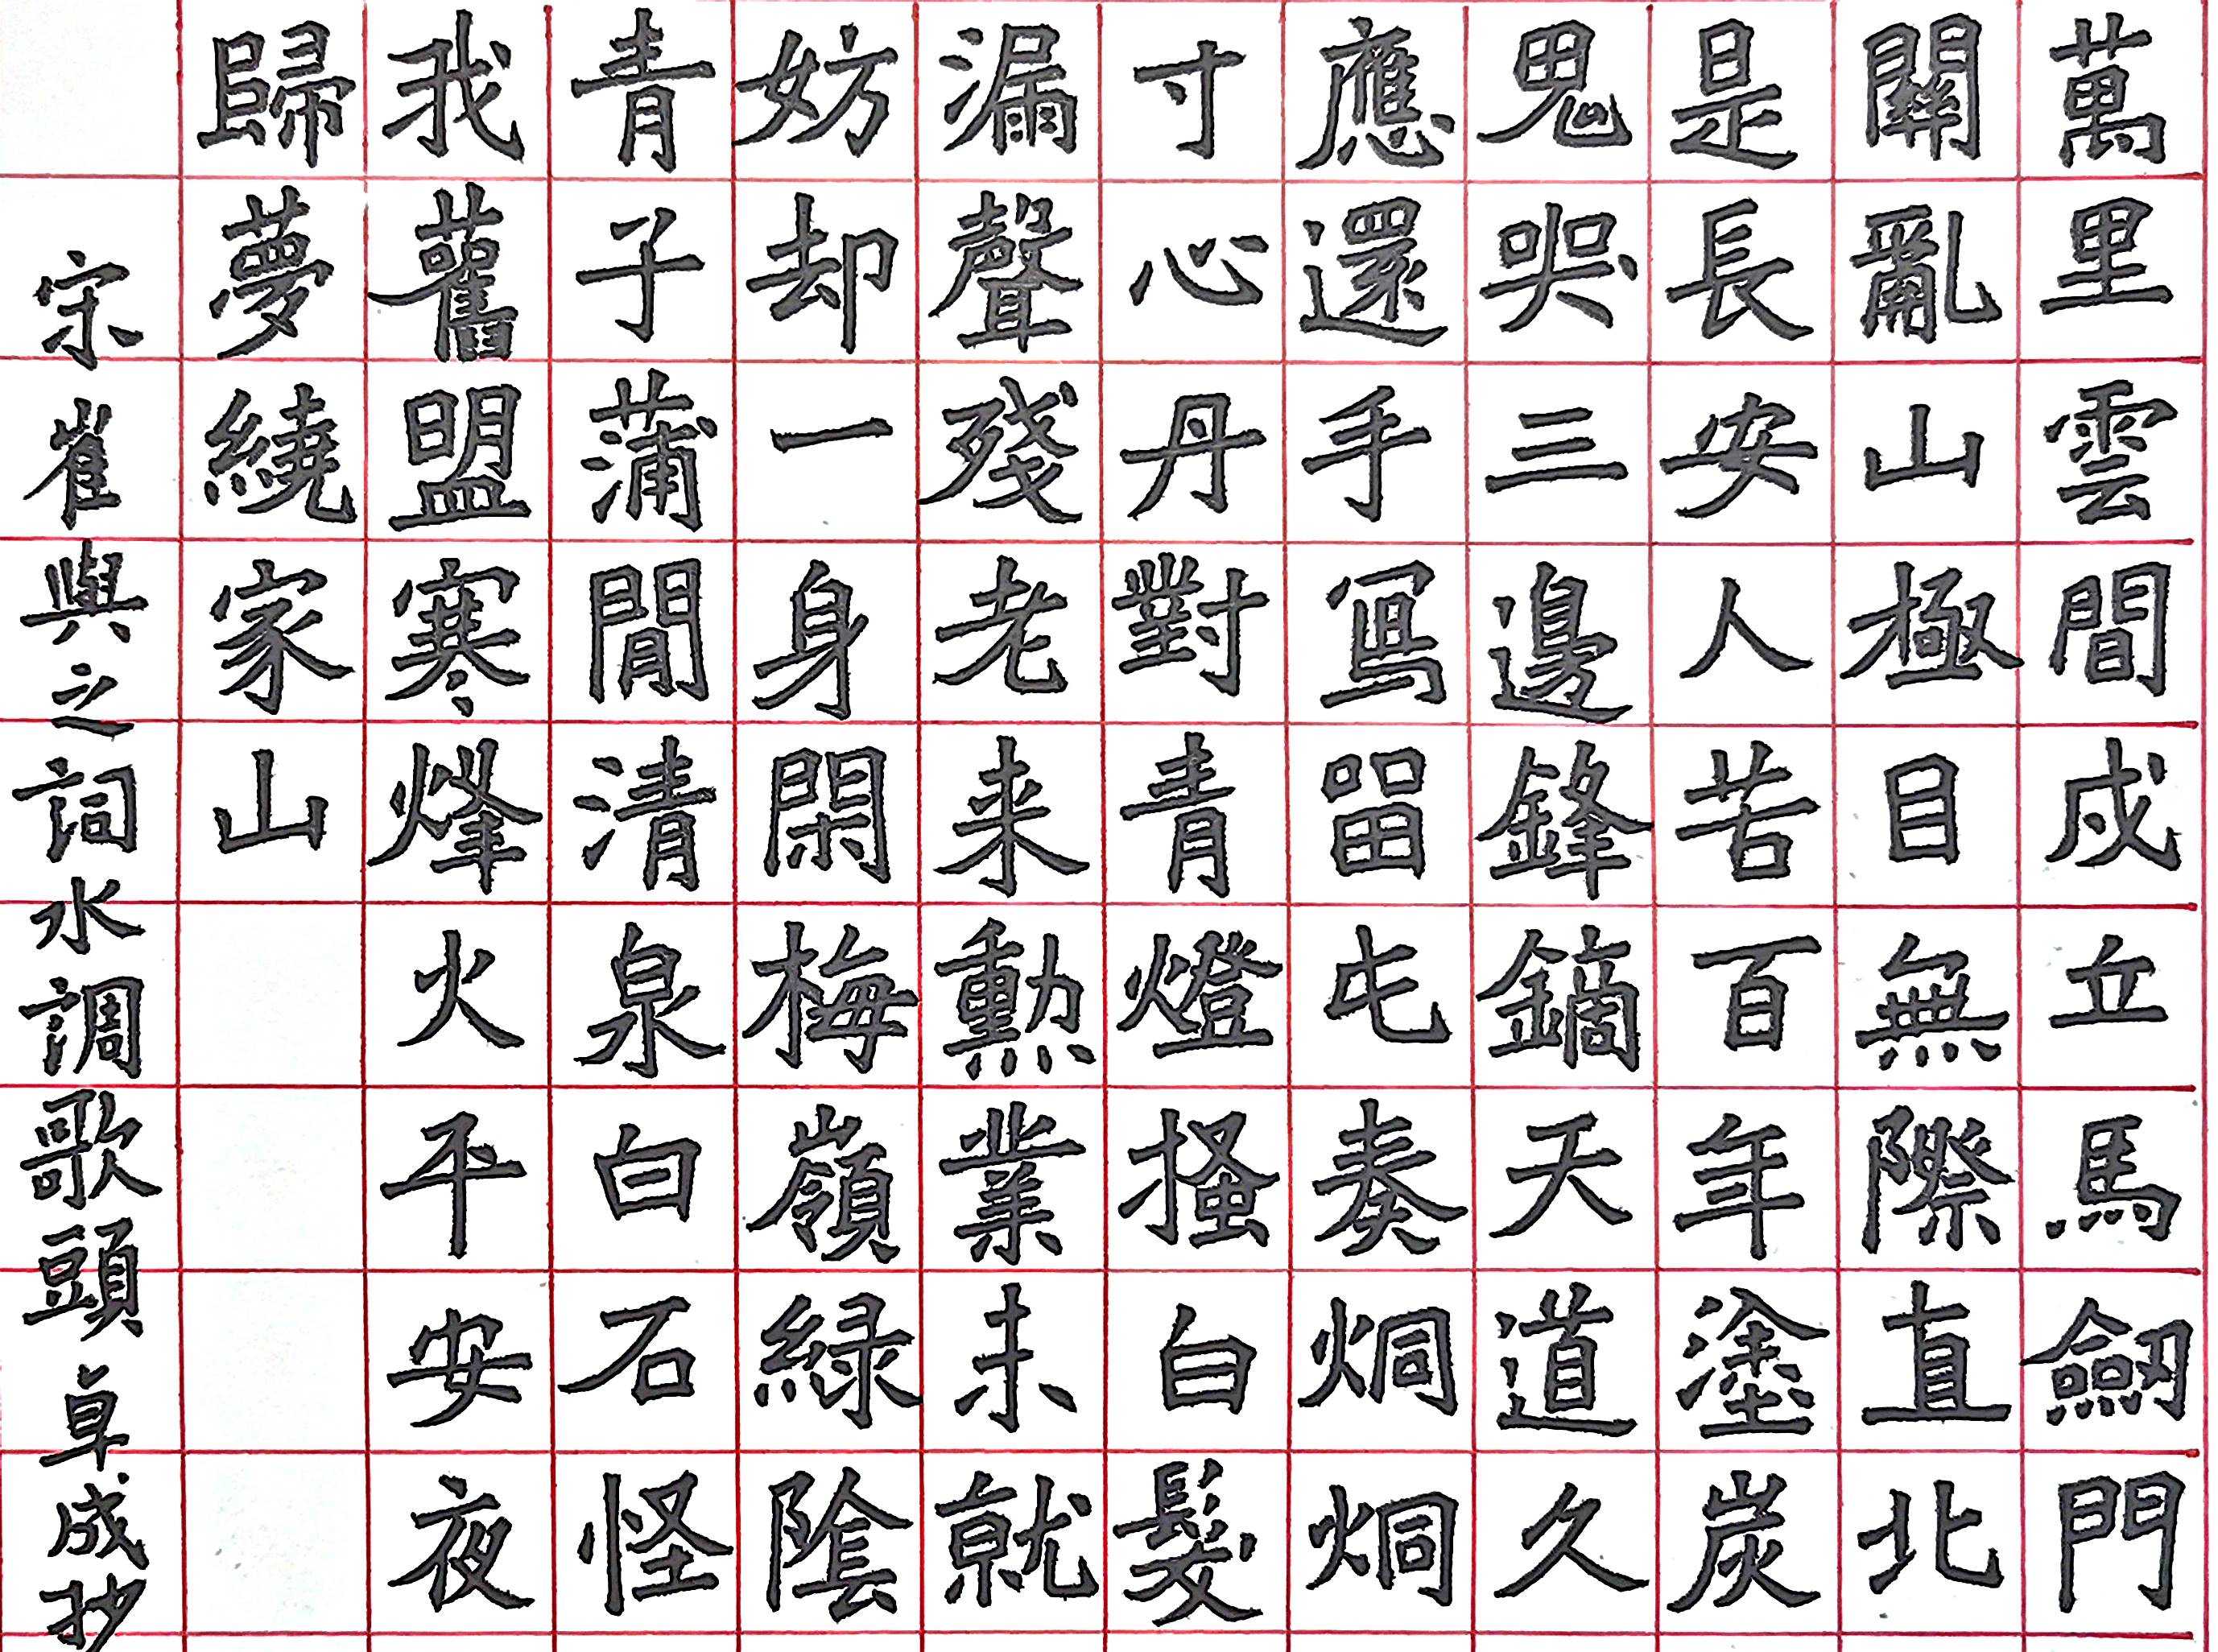 萬里雲間戍立馬劒門
關亂山極目無際直北
是長安人苦百年塗炭
鬼哭三邊鋒鏑天道久
應還手寫留屯奏炯炯
寸心丹對青燈搔白髮
漏聲殘老来勳業未就
妨却一身閑梅嶺緑陰
青子蒲澗清泉白石怪
我舊盟寒烽火平安夜
歸夢繞家山
宋崔與之詞水調歌頭卓成抄